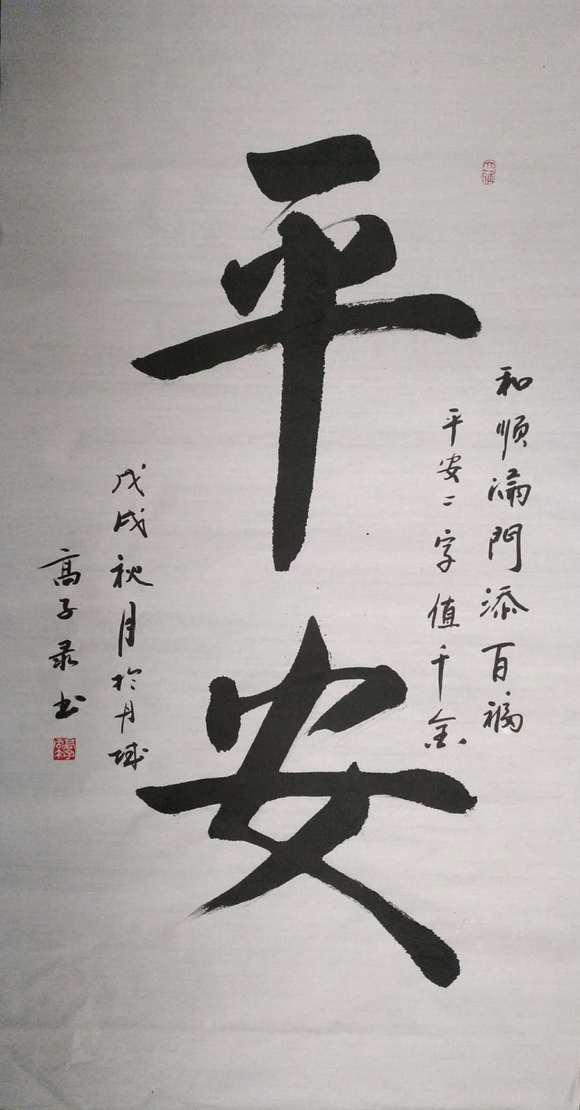 平安
和順滿門添百福
平安二字值千金
戊戌秋月於丹城
高子录书